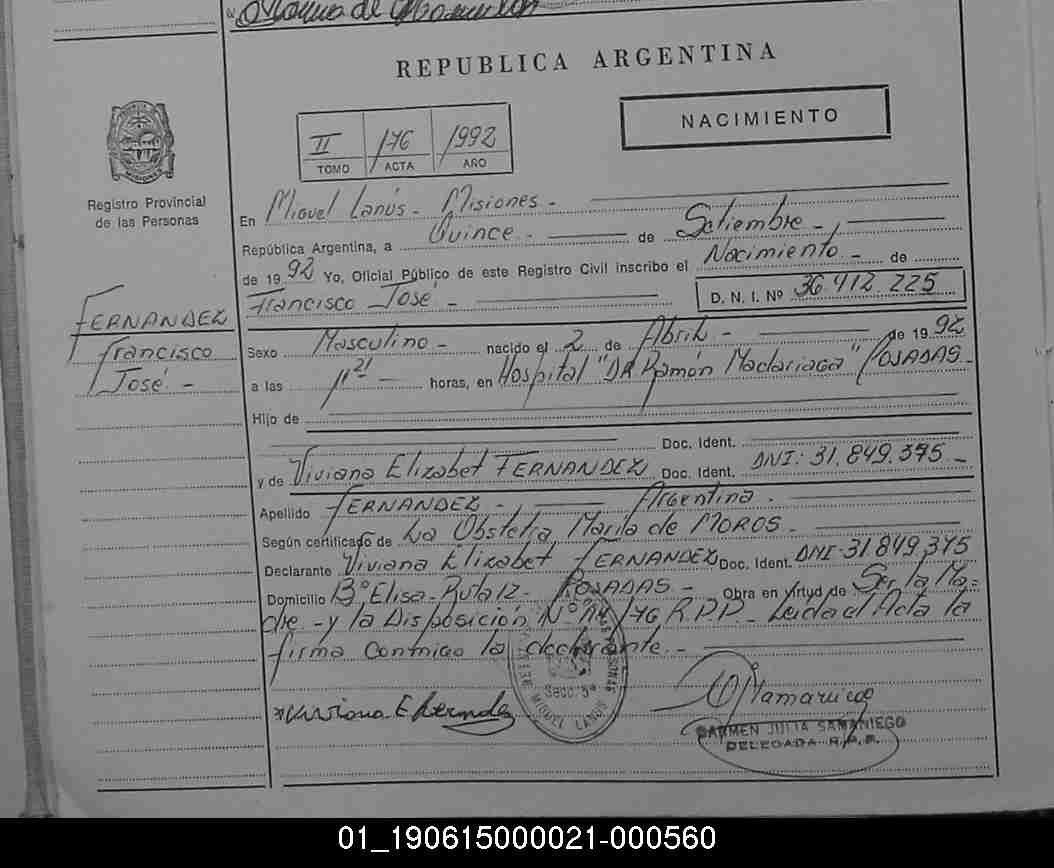 REPUBLICA ARGENTINA
II 176 1992
TOMO ACTA AÑO
NACIMIENTO
Registro Provincial
de las Personas
FERNANDEZ
Francisco
José -
En Miguel Lanús - Misiones -
República Argentina, a Quince - de Setiembre -
de 1992 Yo, Oficial Público de este Registro Civil inscribo el Nacimiento - de
Francisco José - D. N. I. Nº 36.412.225
Sexo Masculino - nacido el 2 de Abril - de 1992
a las horas, en Hospital "DR Ramón Madariaga" POSADAS -
Hijo de
Doc. Ident.
y de Viviana Elizabet FERNANDEZ Doc. Ident. DNI: 31.849.375 -
Apellido FERNANDEZ - Argentina.
Según certificado de La Obstetra, María de MOROS -
Declarante Viviana Elizabet FERNANDEZ Doc. Ident. DNI-31.849.375
Domicilio Bº Elisa - Ruta 12 - POSADAS - Obra en virtud de Ser la Ma-
dre - y la Disposición Nº /76 R.P.P. - Leida el Acta la
firma conmigo la declarante. -
Secc. 5ª
MIGUEL LANUS
CARMEN JULIA SAMANIEGO
DELEGADA R.P.P.
01_190615000021-000560